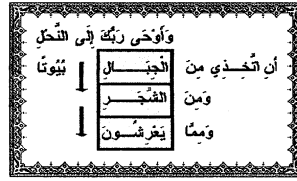 وَأَوْحَى رَبُّكَ إِلَى النَّحْلِ
أَنِ اتَّخِذِي مِنَ الْجِبَــالِ بُيُوتًا
وَمِنَ الشَّجَــرِ
وَمِمَّا يَعْرِشُــونَ